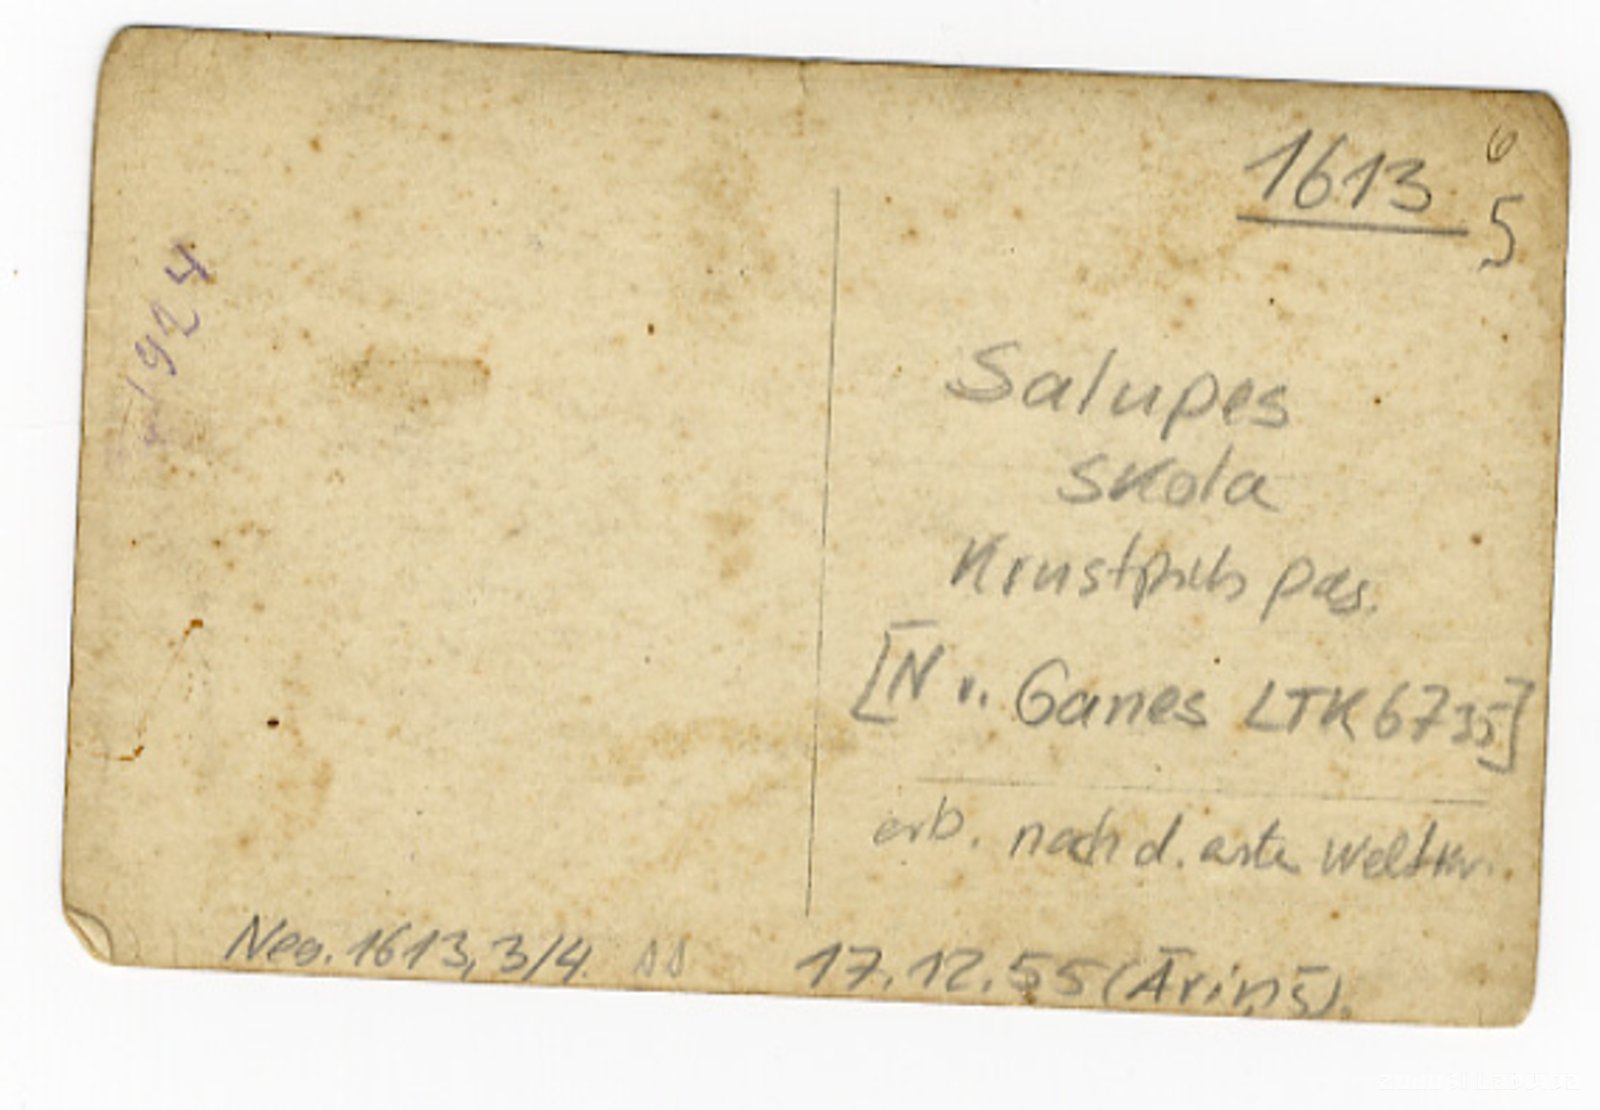 1613
6
5
1924
Salupes
skola
Krustpils pag.
[N v. Ganes LTK 6735]
erb. nach d. erste Weltkr.
Neg. 1613, 3/4.
17.12.55 (Āriņš).